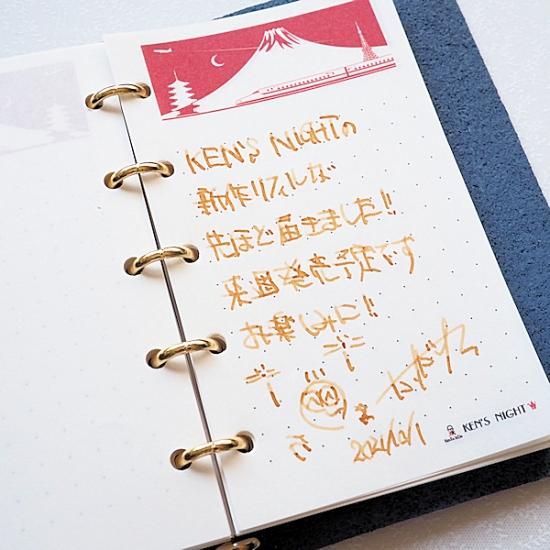 KEN'S NIGHTの
新作リフィルが
先ほど届きました!!
来週発売予定です
お楽しみに!!
2021/10/1
KEN'S NIGHT